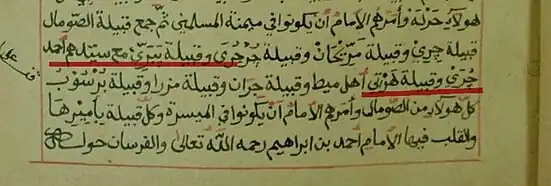 هولاء حزبه وأمرهم الامام أن يكونوا في ميمنة المسلمين ثم جمع قبيلة الصومال
قبيلة جري وقبيلة مريحان وقبيلة جرجري وقبيلة مع سيدهم أحمد
جري وقبيلة هرتي أهل ميط وقبيلة جران وقبيلة مزرا وقبيلة برسوب
كل هولاء من الصومال وأمرهم الامام أن يكونوا في الميسرة وكل قبيلة بأميرها
والقلب فيها الامام أحمد بن ابراهيم رحمه الله تعالى والفرسان حوله